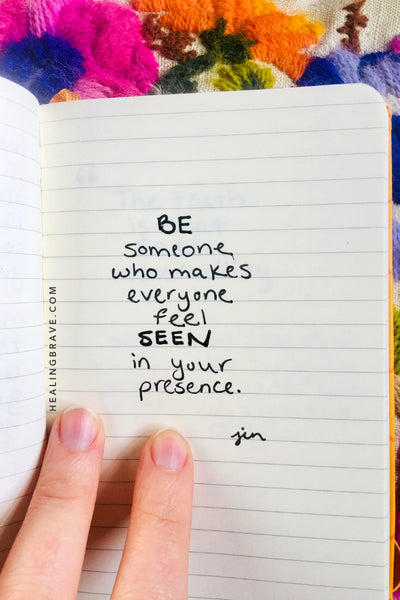 BE
someone
who makes
everyone
feel
SEEN
in your
presence.
jen
HEALINGBRAVE.COM